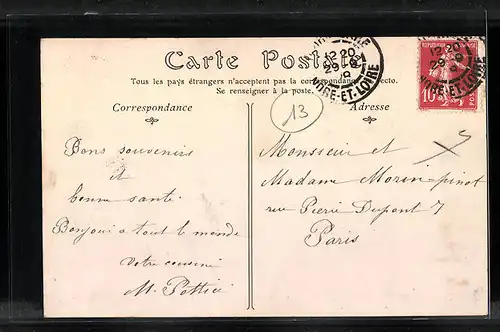 Carte Postale
Tous les pays étrangers n'acceptent pas la correspondance au recto.
Se renseigner à la poste.
Correspondance
Adresse
12 20
29 8
INDRE-ET-LOIRE
12 20
29 8
ET-LOIRE
10
13
Bons souvenirs
et
bonne santé
Bonjour a tout le monde
votre cousine
M.
Monsieur et
Madame Morin-pinot
rue Pierie Dupont 7
Paris